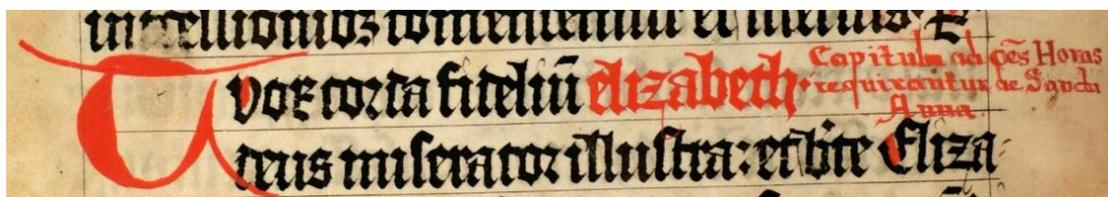 et meritis.
Tuoꝝ corda fideliū elizabeth.
Capitula ad oēs Horas
requirantur de Sancta
Anna.
deus miserator illustra: et btē Eliza-